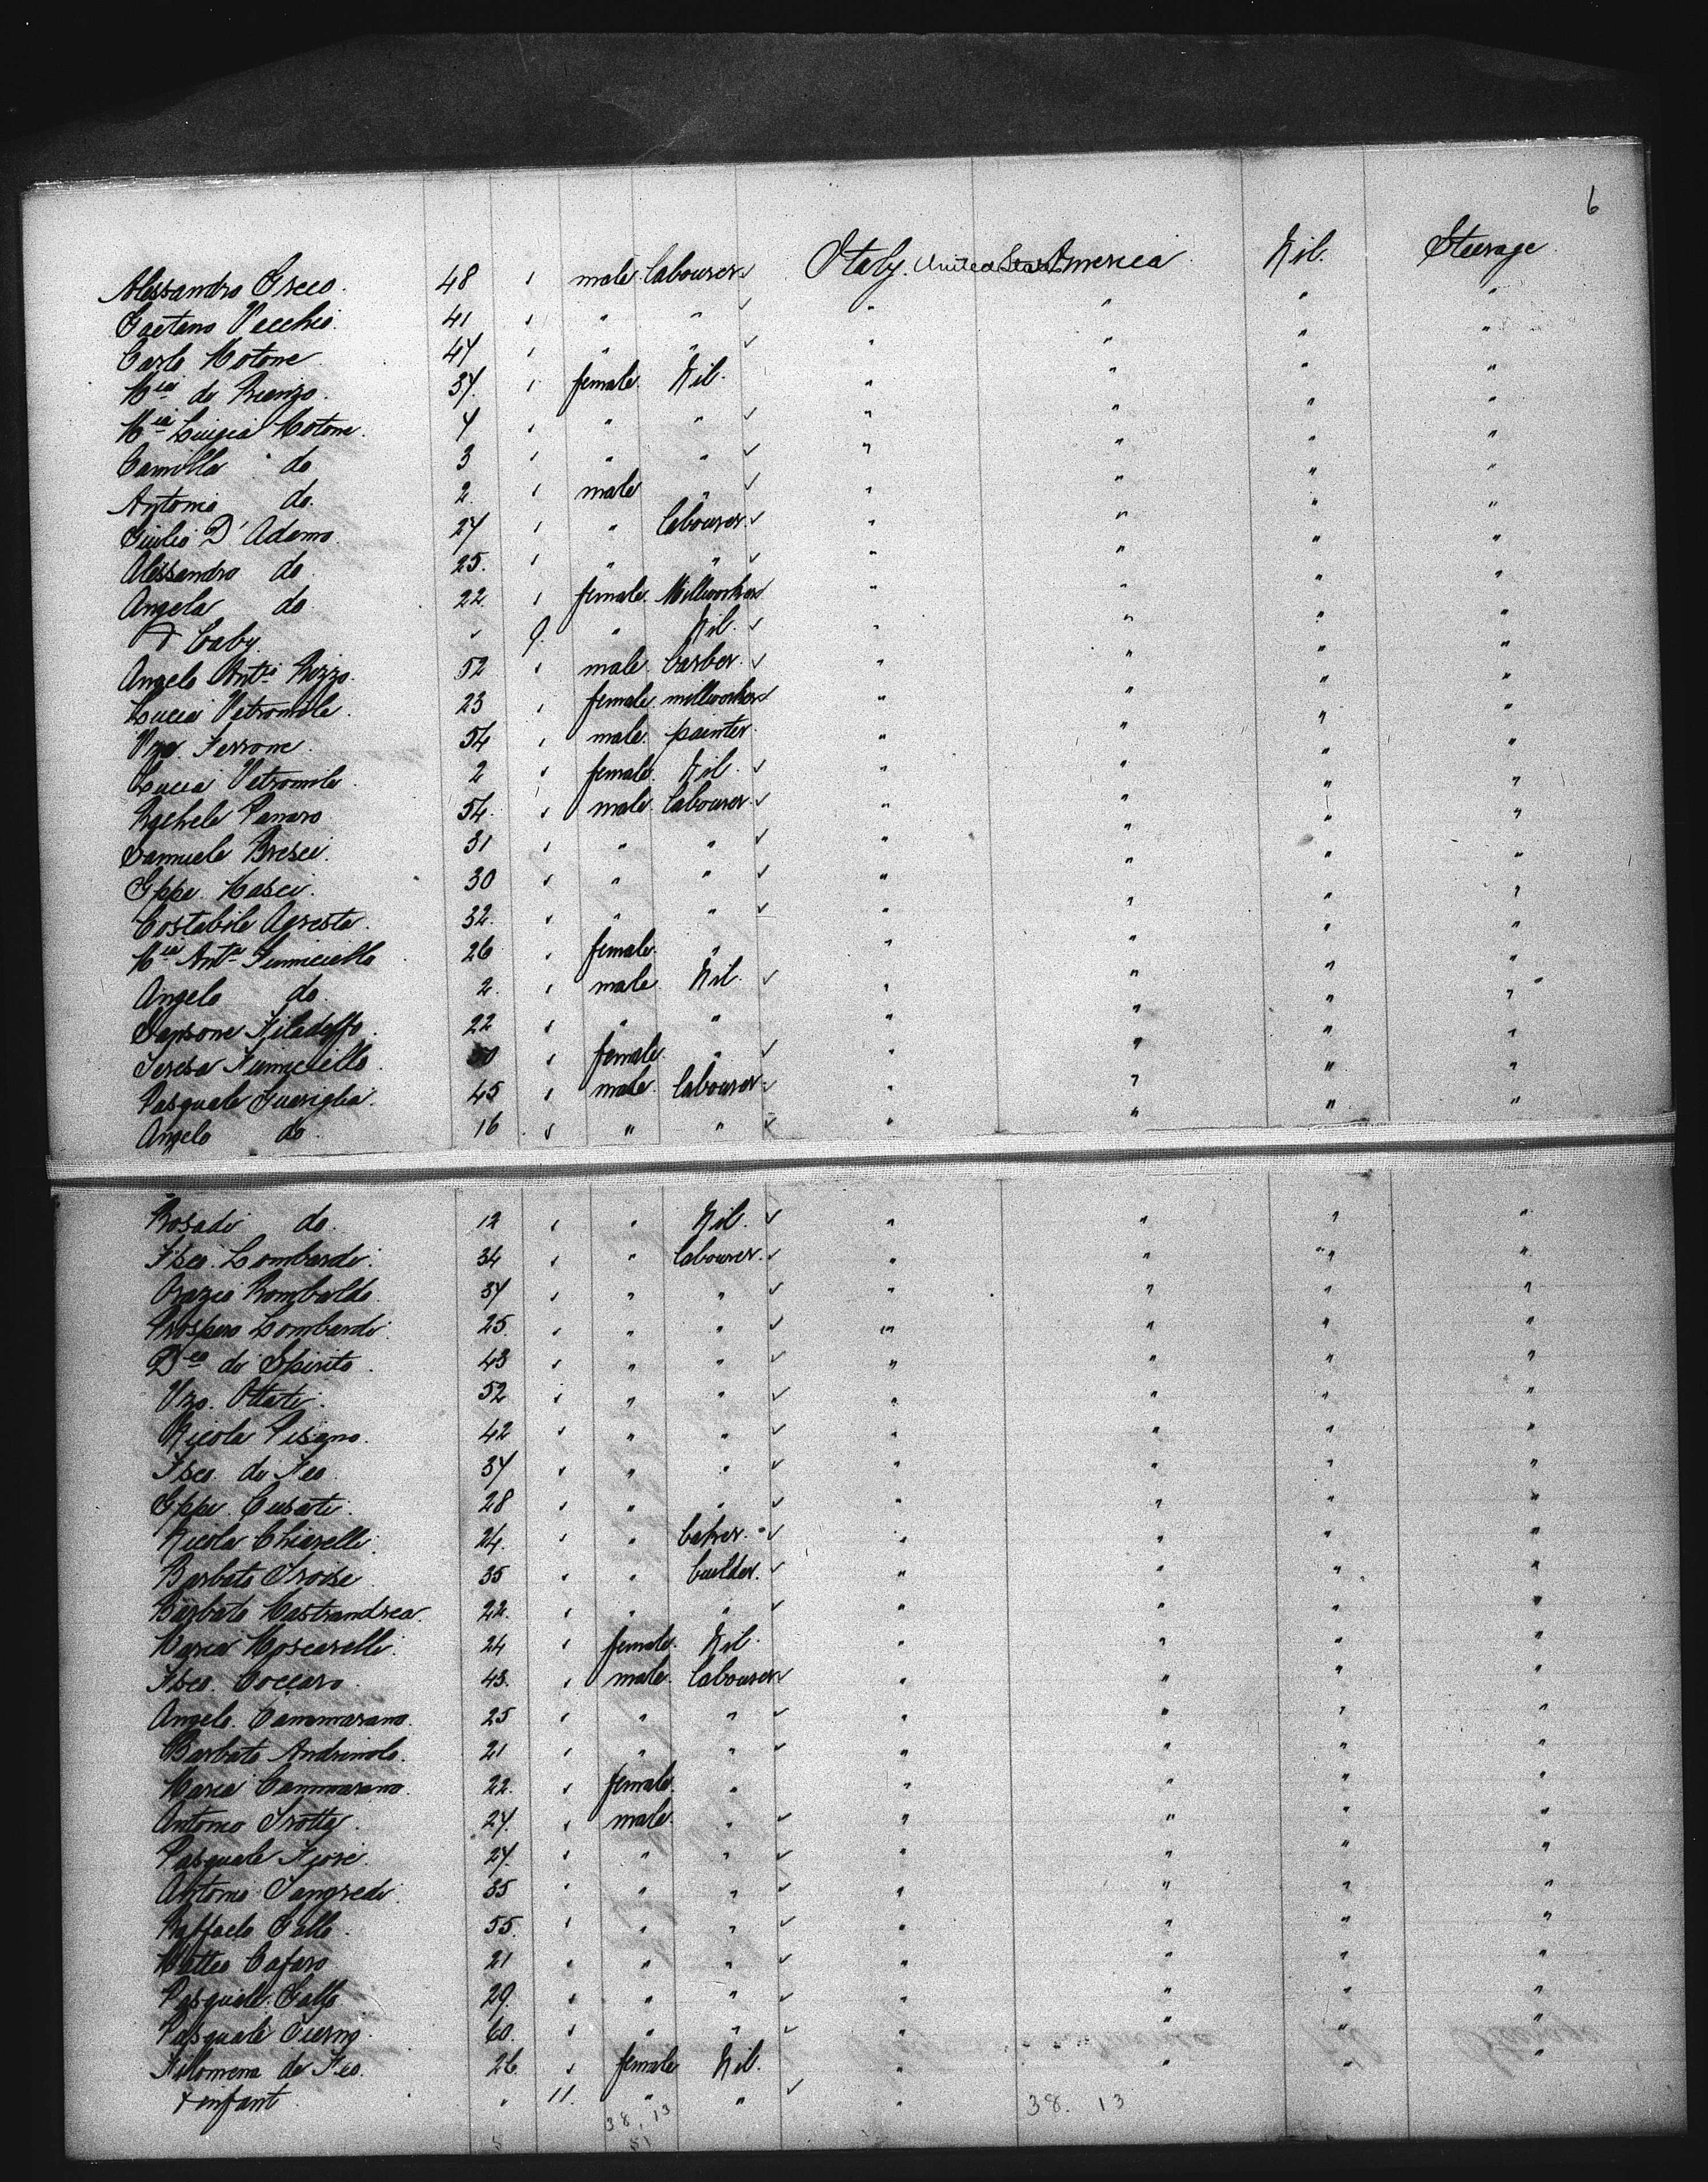 6
Alessandro Greco. 48 " male labourer Italy. United States America Nil. Steerage
Gaetano Vecchio. 41 " " " " " " "
Carlo Motone 47 " " " " " " "
Mia di Rienzo. 37. " female. Nil. " " " "
Mia Luigia Motone. 4 " " " " " " "
Camilla do 3 " " " " " " "
Antonio do. 2. " male " " " " "
Giulio D'Adamo. 27 " " labourer " " " "
Alessandro do 25. " " " " " " "
Angela do 22. " female. Millworker " " " "
& baby. " 9. " Nil. " " " "
Angelo Anto. Rizzo. 52 " male. barber. " " " "
Lucia Vetromile. 23 " female. millworker " " " "
Vzo. Ferrone. 54 " male. painter. " " " "
Lucia Vetromile. 2 " female. Nil. " " " "
Rachele Panaro 54. " male. labourer. " " " "
Samuele Bresci. 31 " " " " " " "
Gppe. Masci. 30 " " " " " " "
Costabile Agresta. 32. " " " " " " "
Mia Anta Fumiciello 26 " female. " " " " "
Angelo do. 2. " male. Nil. " " " "
Sansone Filadelfo. 22 " " " " " " "
Teresa Fumiciello. 50 " female. " " " " "
Pasquale Guariglia. 45 " male. labourer " " " "
Angelo do. 16 " " " " " " "
Rosadi do. 12 " " Nil. " " " "
Fsco. Lombardi. 34 " " labourer. " " " "
Orazio Rombaldo. 37 " " " " " " "
Prospero Lombardi. 25. " " " " " " "
Dco di Spirito. 43 " " " " " " "
Vzo. Ottati. 52 " " " " " " "
Nicola Pisano. 42 " " " " " " "
Fsco. di Feo 37 " " " " " " "
Gppe. Cusati. 28 " " " " " " "
Nicola Chiarelli. 24. " " baker. " " " "
Barbato Troise 35 " " builder. " " " "
Barbato Mastrandrea. 22. " " " " " " "
Maria Moscarelli. 24 " female. Nil. " " " "
Fsco. Coccaro. 43. " male. labourer " " " "
Angelo. Cammarano. 25 " " " " " " "
Barbato Andriuolo. 21 " " " " " " "
Maria Cammarano. 22. " female. " " " " "
Antonio Trotta. 27. " male. " " " " "
Pasquale Fiore. 27. " " " " " " "
Antonio Tangredi. 35 " " " " " " "
Raffaele Gallo. 55. " " " " " " "
Matteo Cafaro 21 " " " " " " "
Pasquale Gallo 29. " " " " " " "
Pasquale Tierno. 60. " " " " " " "
Filomena di Feo. 26. " female Nil. " " " "
& infant. " 11. " " "
38. 13 38. 13
51